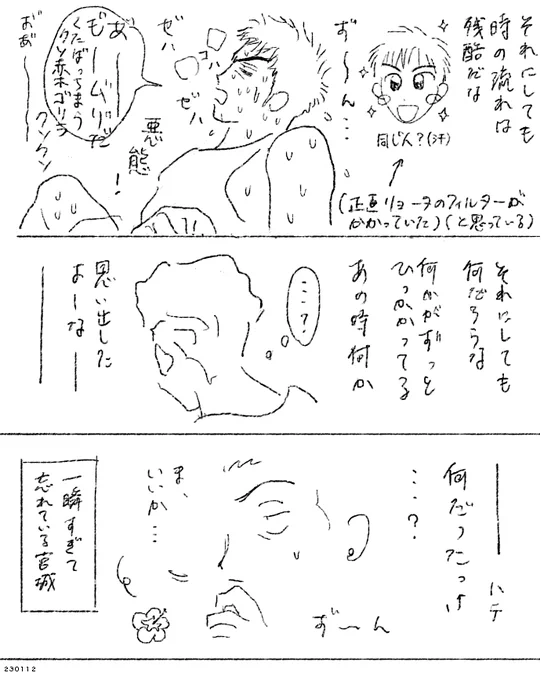 それにしても
時の流れは
残酷だな
同じ人?(汗)
(正直リョータのフィルターが
かかっていた)(と思っている)
ず〜ん…
ゼハ
コハ
ゼハ
悪態!
あ"ーー
もームリだ
くたばっちまう
クソ赤木ゴリラ
おあ"ーー
クンクン
それにしても
何だろうな
何かがずっと
ひっかかってる
あの時何か
…?
思い出した
よーな
ハテ
何だったっけ
…?
ず〜ん
ま、
いいか…
一瞬すぎて
忘れている宮城
230112